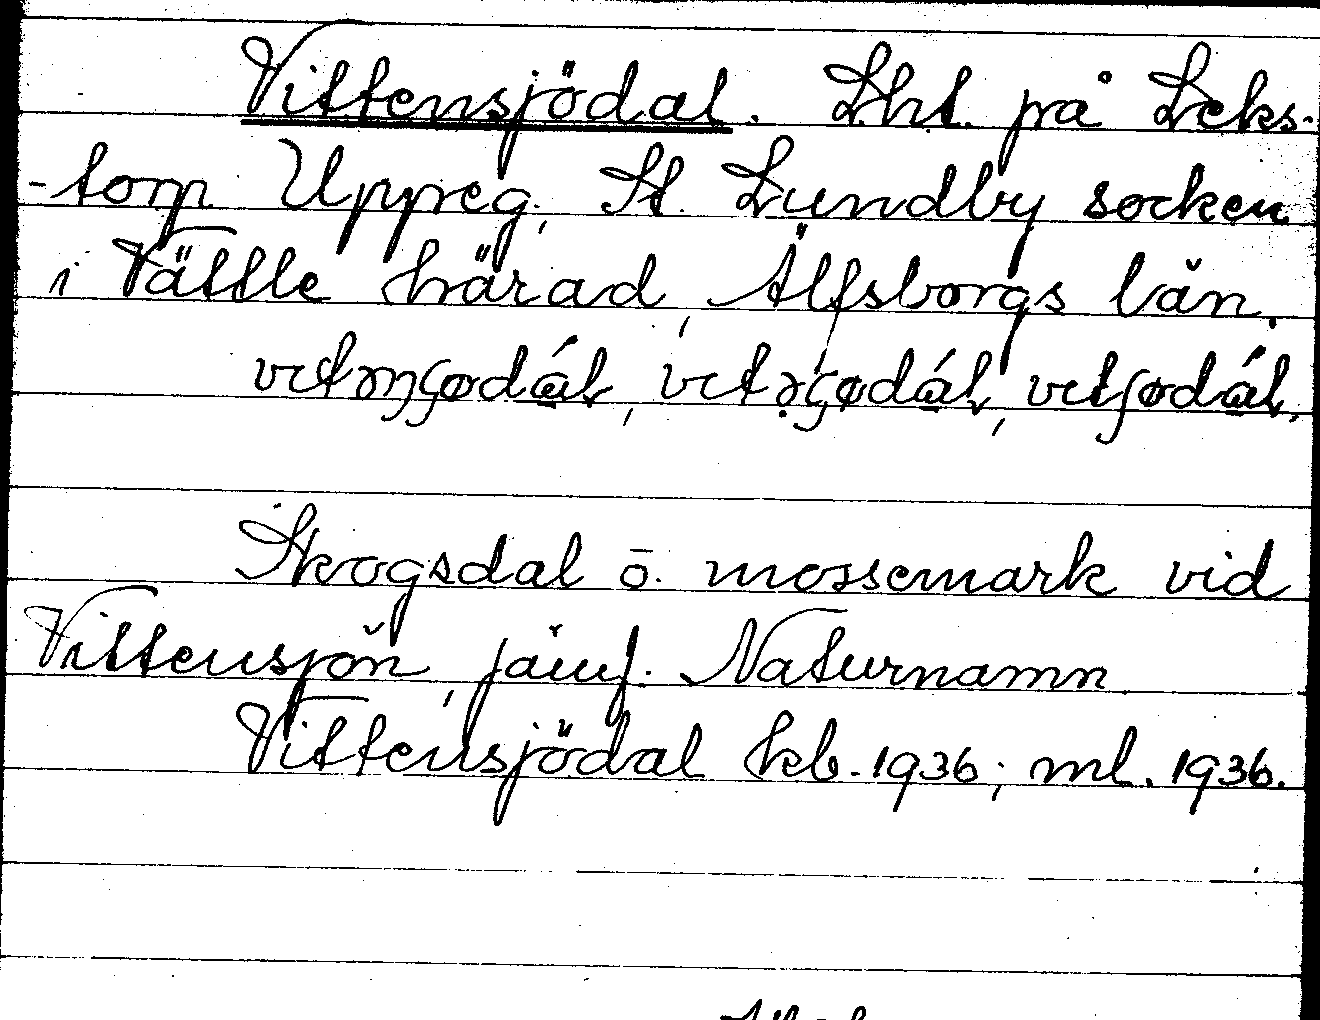 Vittensjödal. Lht. på Leks-
-torp Uppreg., St. Lundby socken
i Vättle härad, Älfsborgs län.
Skogsdal o. mossemark vid
Vittensjön, jämf. Naturnamn
Vittensjödal kb. 1936; ml. 1936.